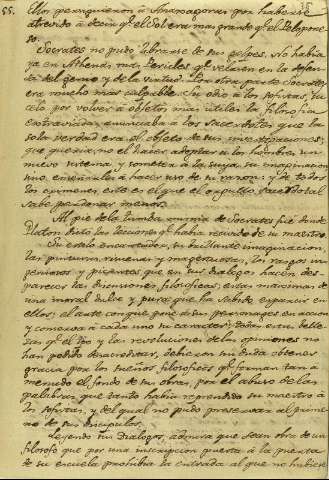 55.
Ellos persiguieron à Anaxagoras por haberse
atrevido à decir qe el Sol era mas grande qe el Pelopone-
so.
Socrates no pudo librarse de sus golpes. No habia
ya en Athenas un Pericles qe velase en la defen-
sa del genio y de la virtud. Por otra parte Socrates
era mucho mas culpable. Su odio à los sofistas, su
celo por volver à objetos mas utiles la filosofia
extraviada, anunciaba à los Sacerdotes que la
sola verdad era el objeto de sus investigaciones;
que queria, no el hacer adoptar à los hombres un
nuevo sistema, y someter à la suya, su imaginacion
sino, enseñarles à hacer uso de su razon: y de todos
los crimenes este es el que el orgullo Sacerdotal
sabe perdonar menos.
Al pie de la tumba misma de Socrates fué donde
Platon dicto las lecciones qe habia recivido de su maestro.
Su estilo encantador, su brillante imaginacion,
las pinturas risueñas y magestuosas, los rasgos in-
geniosos y picantes que en sus dialogos hacen des-
parecer las discusiones filosoficas; estas maximas de
una moral dulce y pura que ha sabido esparcir en
ellos; al arte con que pone à sus personages en accion
y conserva à cada uno su caracter; todas estas belle-
zas qe el tpo y las revoluciones de las opiniones no
han podido desacreditar, deben sin duda obtener
gracia por los sueños filosoficos qe forman tan à
menudo el fondo de sus obras, por el abuso de las
palabras que tanto habia reprendido su maestro à
los sofistas, y del qual no pudo preservar al prime-
ro de sus discipulos.
Leyendo sus Dialogos, admira que sean obra de un
filosofo que por una inscripcion puesta à la puerta
de su escuela prohibia la entrada al que no hubiese